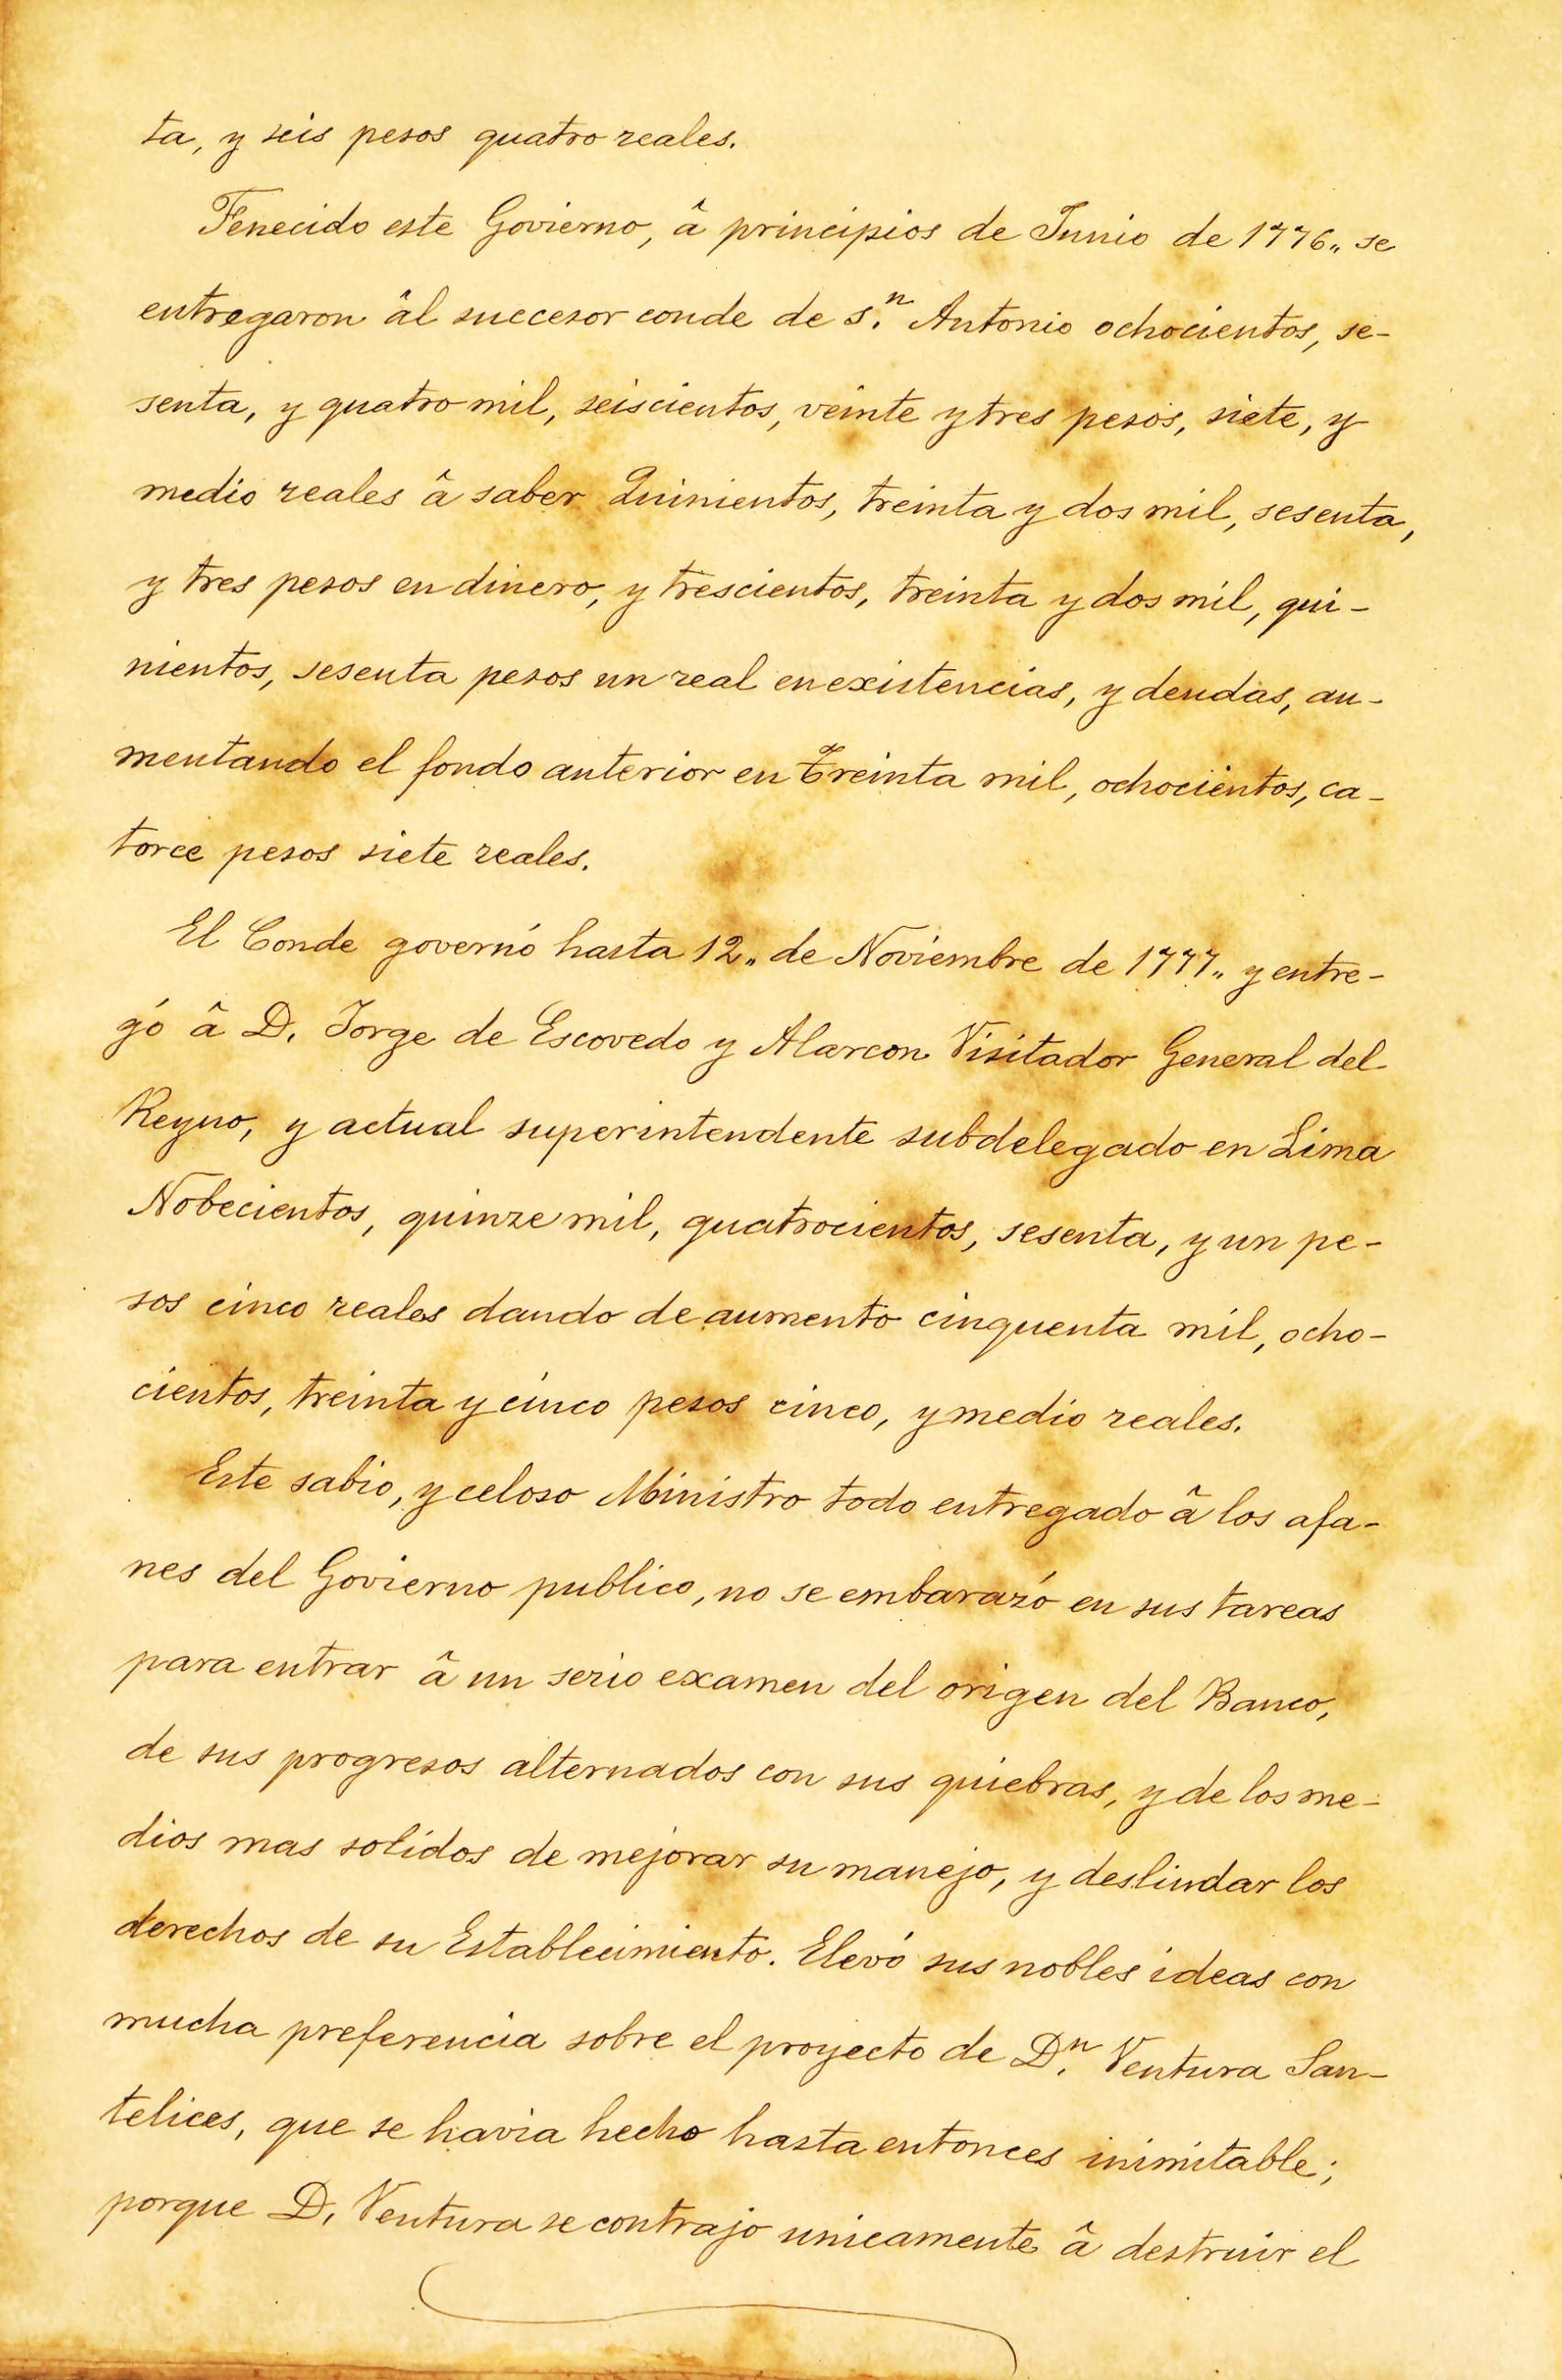 ta, y seis pesos quatro reales.
Fenecido este Govierno, â principios de Junio de 1776,, se
entregaron âl succesor conde de s.ⁿ Antonio ochocientos, se-
senta, y quatro mil, seiscientos, veinte y tres pesos, siete, y
medio reales â saber Quinientos, treinta y dos mil, sesenta,
y tres pesos en dinero, y trescientos, treinta y dos mil, qui-
nientos, sesenta pesos un real en existencias, y deudas, au-
mentando el fondo anterior en Treinta mil, ochocientos, ca-
torce pesos siete reales.
El Conde governó hasta 12,, de Noviembre de 1777,, y entre-
gó â D. Jorge de Escovedo y Alarcon Visitador General del
Reyno, y actual superintendente subdelegado en Lima
Nobecientos, quinze mil, quatrocientos, sesenta, y un pe-
sos cinco reales dando de aumento cinquenta mil, ocho-
cientos, treinta y cinco pesos cinco, y medio reales.
Este sabio, y celoso Ministro todo entregado â los afa-
nes del Govierno publico, no se embarazó en sus tareas
para entrar â un serio examen del origen del Banco,
de sus progresos alternados con sus quiebras, y de los me-
dios mas solidos de mejorar su manejo, y deslindar los
derechos de su Establecimiento. Elevó sus nobles ideas con
mucha preferencia sobre el proyecto de D.ⁿ Ventura San-
telices, que se havia hecho hasta entonces inimitable;
porque D. Ventura se contrajo unicamente â destruir el